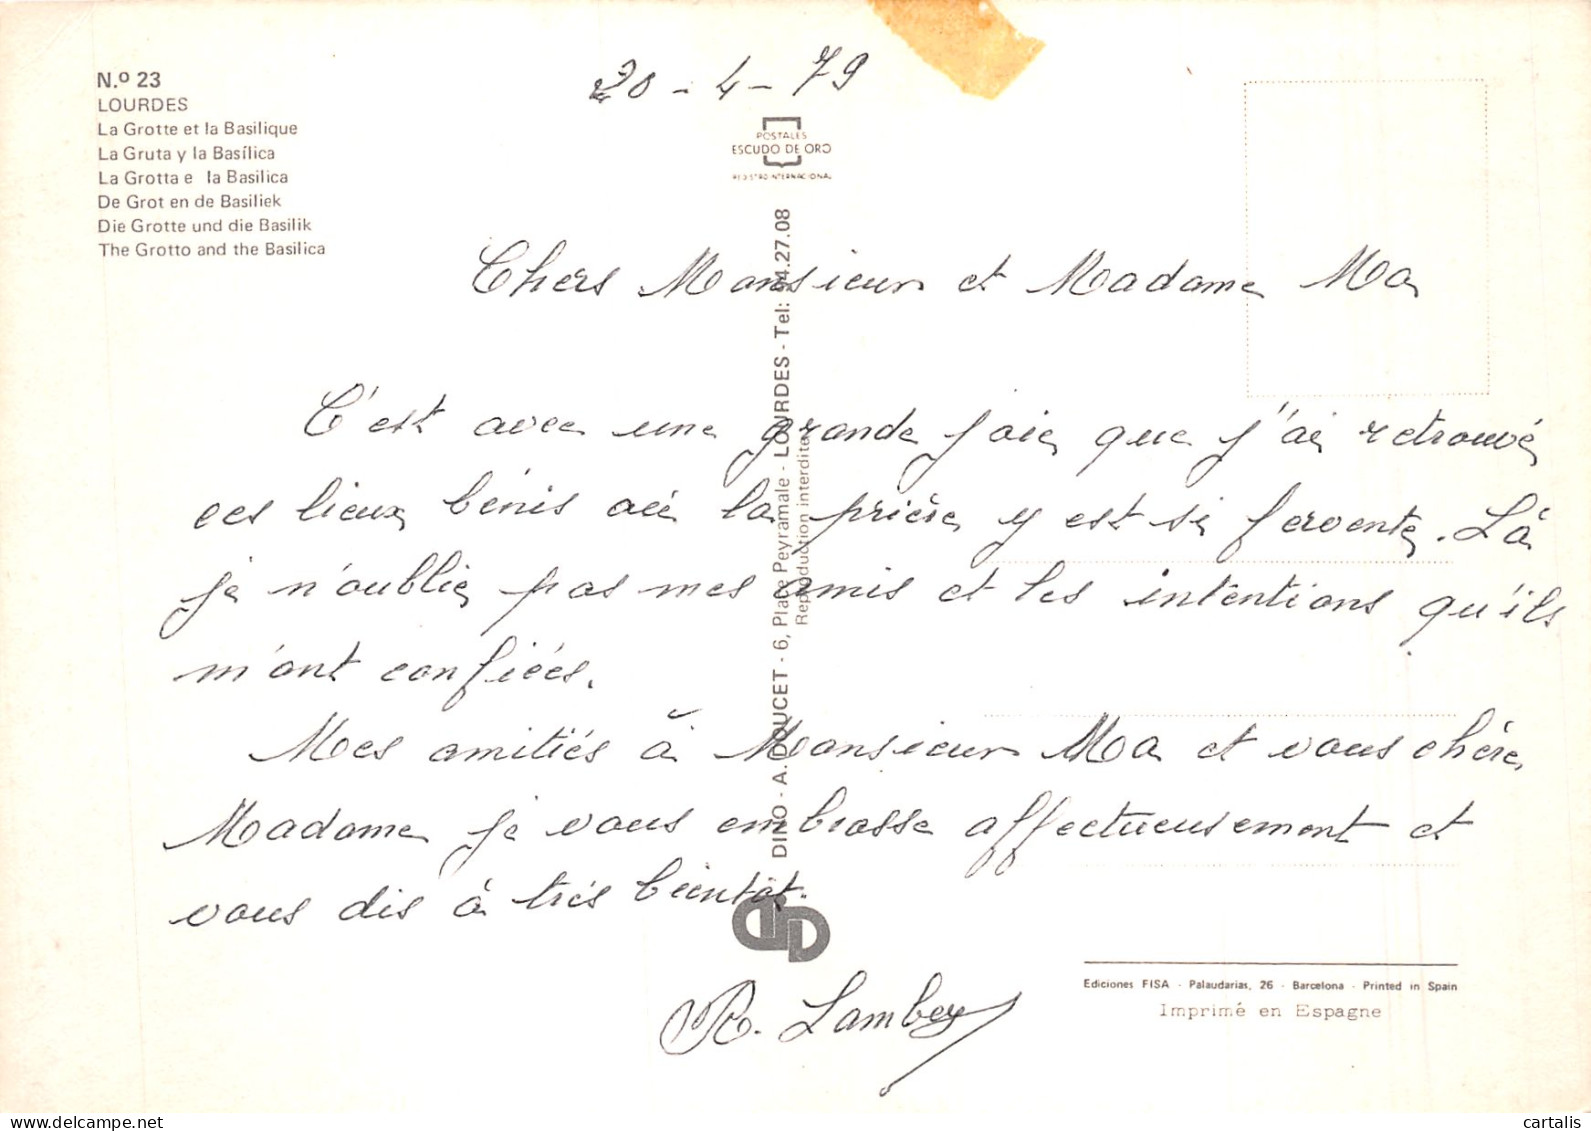 20-4-79
N.º 23
LOURDES
La Grotte et la Basilique
La Gruta y la Basílica
La Grotta e la Basilica
De Grot en de Basiliek
Die Grotte und die Basilik
The Grotto and the Basilica
POSTALES
ESCUDO DE ORO
REGISTRO INTERNACIONAL
Chers Monsieur et Madame Ma
C'est avec une grande joie que j'ai retrouvé
ces lieux bénis où la prière y est si fervente. Là
je n'oublie pas mes amis et les intentions qu'ils
m'ont confiées.
Mes amitiés à Monsieur Ma et vous chère
Madame je vous embrasse affectueusement et
vous dis à très bientôt.
R. Lambey
DINO - A. DOUCET - 6, Place Peyramale - LOURDES - Tel: 4.27.08
Reproduction interdite
Ediciones FISA - Palaudarias, 26 - Barcelona - Printed in Spain
Imprimé en Espagne
delcampe.net
cartalis